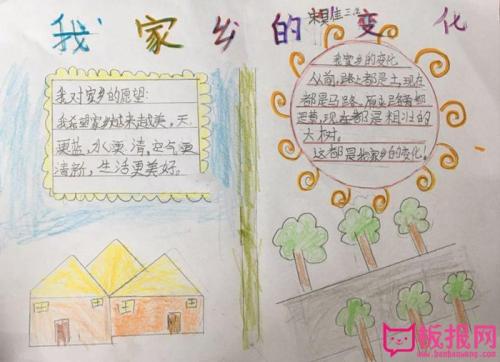 我家乡的变化
我对家乡的愿望:
我希望家乡越来越美,天
更蓝,水更清,空气更
清新,生活更美好。
我家乡的变化
从前,路上都是土,现在
都是马路。
现在都是粗壮的
大树。
这都是我家乡的变化!
板报网
www.banbaowang.com